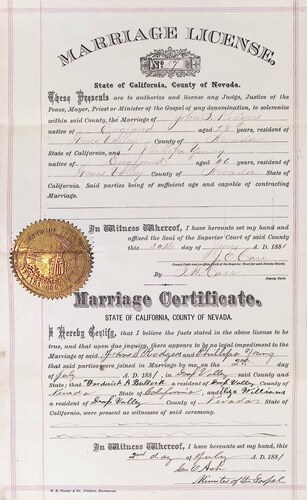 MARRIAGE LICENSE,
No. 17
State of California, County of Nevada.
These Presents are to authorize and license any Judge, Justice of the
Peace, Mayor, Priest or Minister of the Gospel of any denomination, to solemnize
within said County, the Marriage of John S. Rodgers
native of England aged 28 years, resident of
Grass Valley County of Nevada
State of California, and Phillipa Young
native of England aged 26 years, resident of
Grass Valley County of Nevada
State of California. Said parties being of sufficient age and capable of contracting
Marriage.
In Witness Whereof, I have hereunto set my hand and
affixed the Seal of the Superior Court of said County
this 30th day of June A. D. 1881
By
Deputy Clerk.
Marriage Certificate.
STATE OF CALIFORNIA, COUNTY OF NEVADA.
I Hereby Certify, that I believe the facts stated in the above license to
be true, and that upon due inquiry, there appears to be no legal impediment to the
Marriage of said John S Rodgers and Phillipa Young
that said parties were joined in Marriage by me, on the 2nd day
of July A. D. 1881 in Grass Valley said County and
State; that Frederick A Bullock a resident of Grass Valley,
Nevada State of California and Eliza Williams
a resident of Grass Valley County of Nevada State of
California, were present as witnesses of said ceremony.
In Witness Whereof, I have hereunto set my hand, this
2nd day of July A. D. 1881
Minister of the Gospel